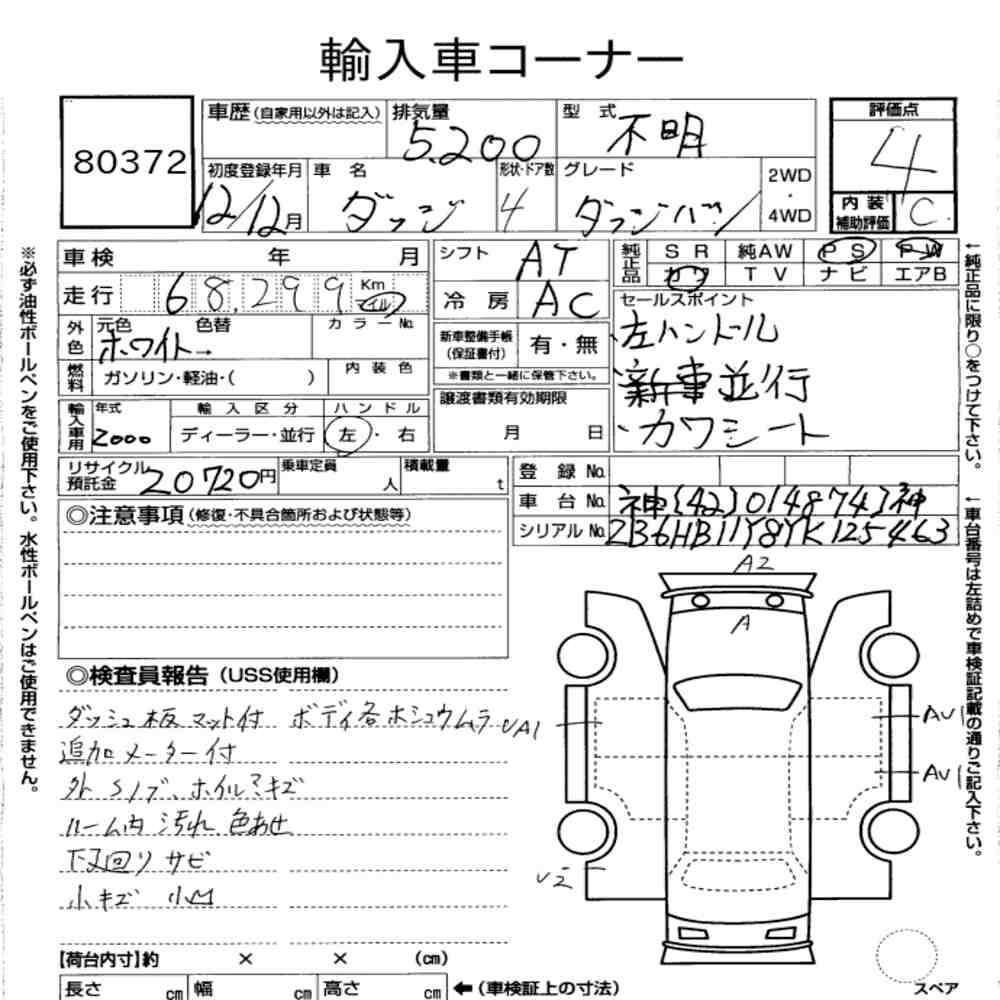 輸入車コーナー
80372
車歴(自家用以外は記入) 排気量 5.200 型式 不明
評価点 4
初度登録年月 12/12月 車名 ダッジ 形状・ドア数 4 グレード ダランバン 2WD・4WD
内装補助評価 C
車検 年 月
走行 68,299 Km マイル
シフト AT
冷房 AC
純正品 SR 純AW PS PW
カワ TV ナビ エアB
外色 元色 ホワイト→ 色替 カラーNo.
燃料 ガソリン・軽油・( ) 内装色
新車整備手帳(保証書付) 有・無
※書類と一緒に保管下さい。
セールスポイント
左ハンドル
新車並行
・カワシート
輸入車用 年式 2000 輸入区分 ディーラー・並行 ハンドル 左・右
譲渡書類有効期限 月 日
リサイクル預託金 20720円 乗車定員 人 積載量 t
登録No.
車台No. 神[42]014874]神
シリアルNo. 2B6HB11Y8YK125463
◎注意事項(修復・不具合箇所および状態等)
◎検査員報告(USS使用欄)
ダッシュ板マット付 ボディ各ホシュウムラ
追加メーター付
外Sノブ、ホイルミキズ
ルーム内汚れ 色あせ
下叉回りサビ
小キズ 小凹
A2
A
UA1
AU1
AU1
U2
スペア
【荷台内寸】約 × × (cm)
長さ cm 幅 cm 高さ cm ←(車検証上の寸法)
※必ず油性ボールペンをご使用下さい。水性ボールペンはご使用できません。
←純正品に限り○をつけて下さい。
←車台番号は左詰めで車検証記載の通りご記入下さい。